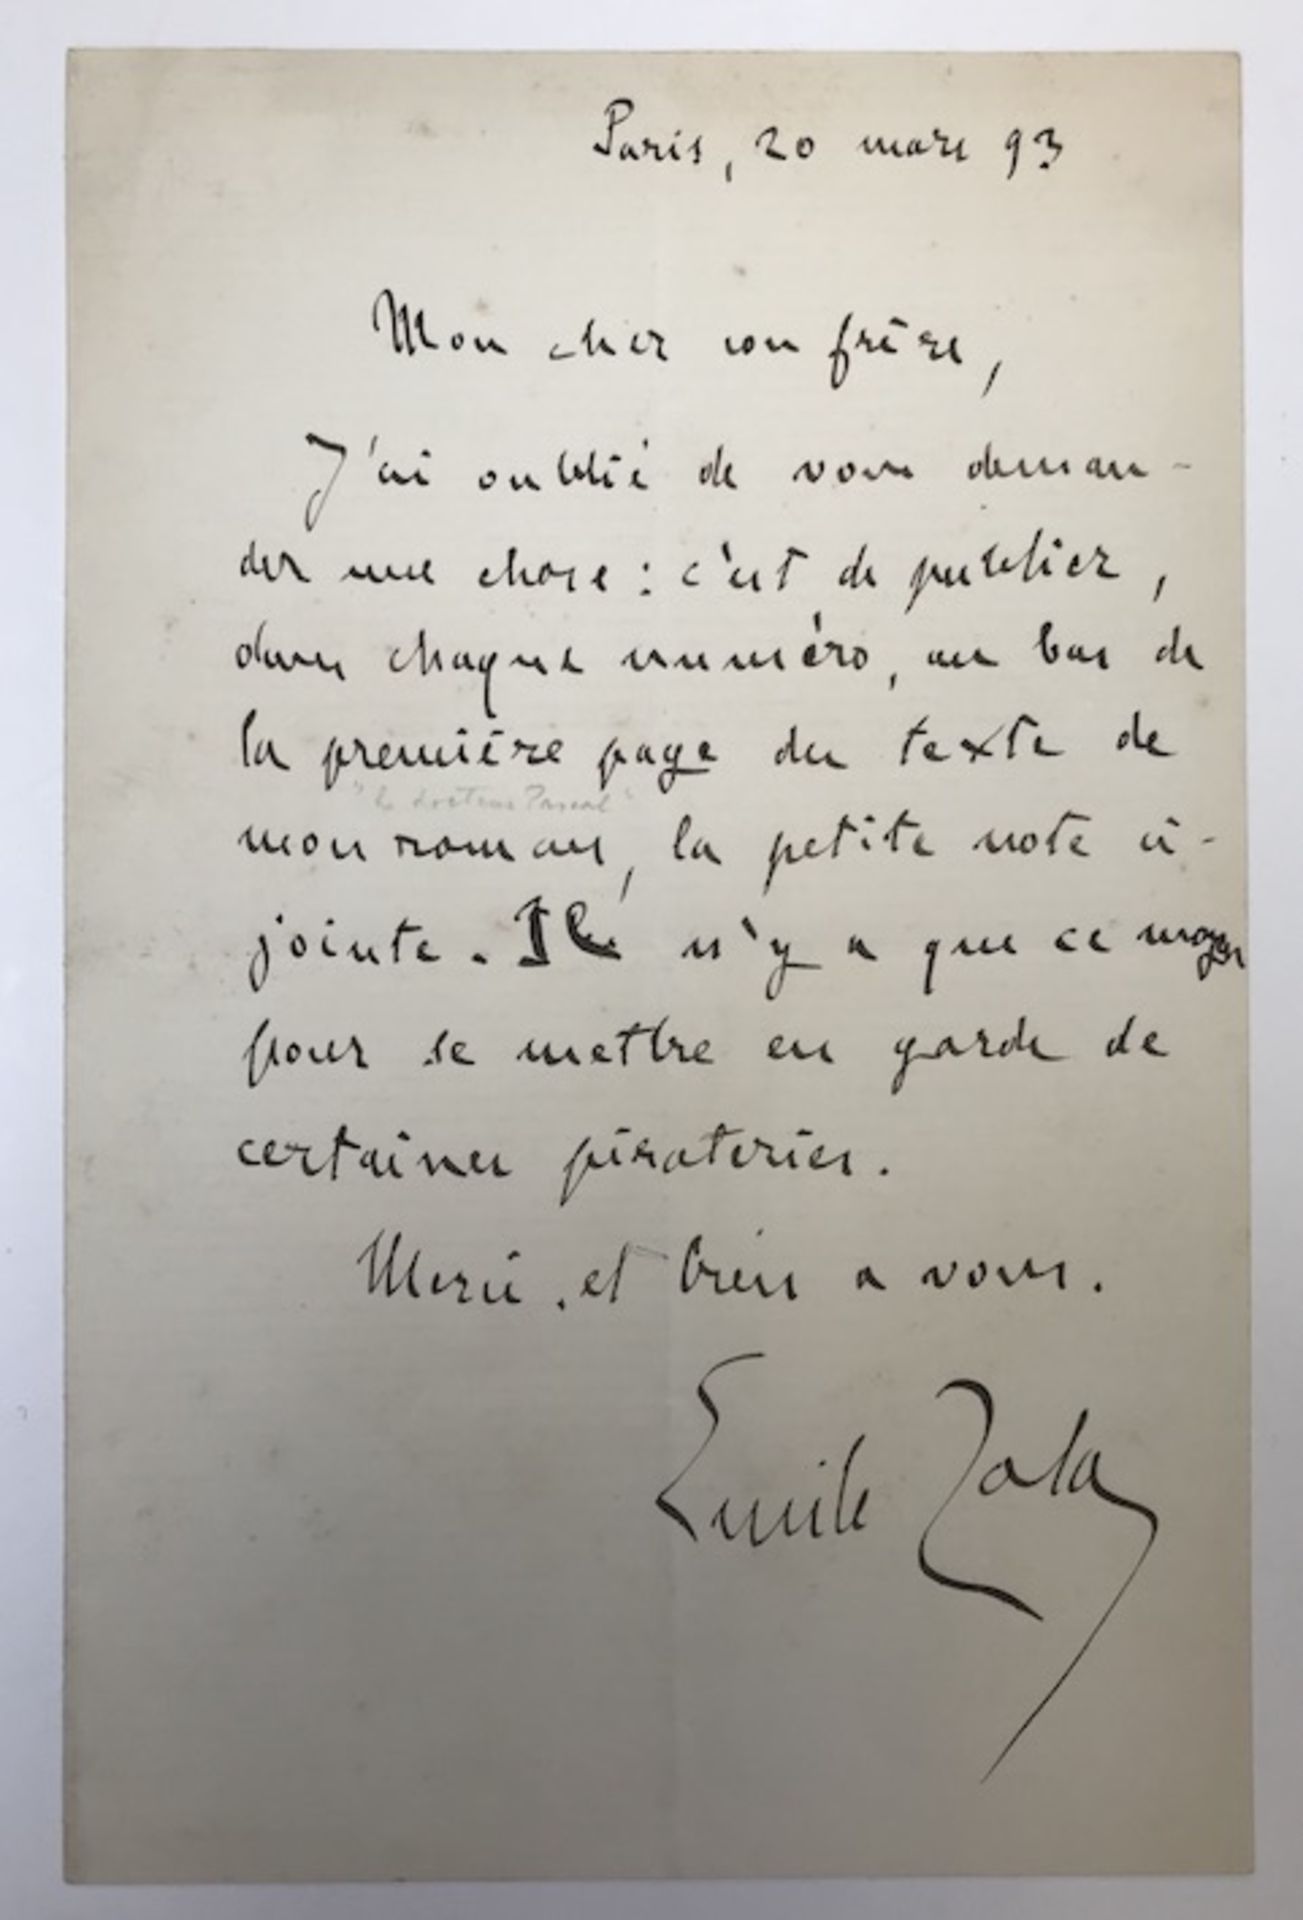 Paris, 20 mars 93
Mon cher confrère,
J'ai oublié de vous deman-
der une chose : c'est de publier,
dans chaque numéro, au bas de
la première page du texte de
"Le docteur Pascal"
mon roman, la petite note ci-
jointe. Il n'y a que ce moyen
pour se mettre en garde de
certaines pirateries.
Merci, et bien a vous.
Emile Zola